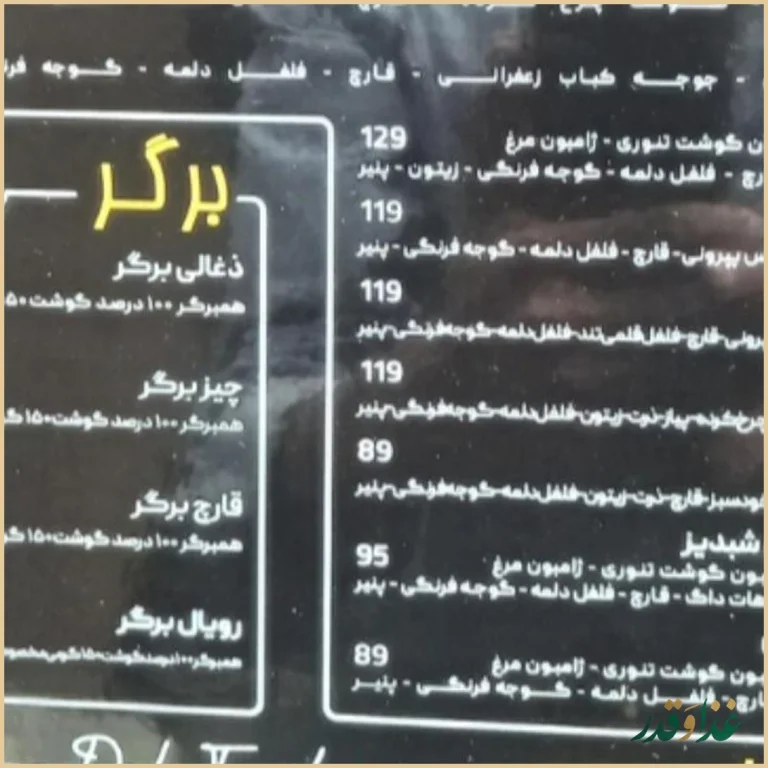 - جوجه کباب زعفرانی - قارچ - فلفل دلمه - گوجه
129
گوشت تنوری - ژامبون مرغ
- فلفل دلمه - گوجه فرنگی - زیتون - پنیر
119
پپرونی - قارچ - فلفل دلمه - گوجه فرنگی - پنیر
119
قارچ-فلفل قلمی تند-فلفل دلمه-گوجه فرنگی-پنیر
119
پیاز-ذرت-زیتون-فلفل دلمه-گوجه فرنگی-پنیر
89
قارچ-ذرت-زیتون-فلفل دلمه-گوجه فرنگی-پنیر
شبدیز
95
گوشت تنوری - ژامبون مرغ
هات داگ - قارچ - فلفل دلمه - گوجه فرنگی - پنیر
89
گوشت تنوری - ژامبون مرغ
- فلفل دلمه - گوجه فرنگی - پنیر
برگر
ذغالی برگر
همبرگر ۱۰۰ درصد گوشت
چیز برگر
همبرگر ۱۰۰ درصد گوشت ۱۵۰
قارچ برگر
همبرگر ۱۰۰ درصد گوشت ۱۵۰
رویال برگر
همبرگر ۱۰۰ درصد گوشت ۱۵۰ گرمی
غذا و قدر